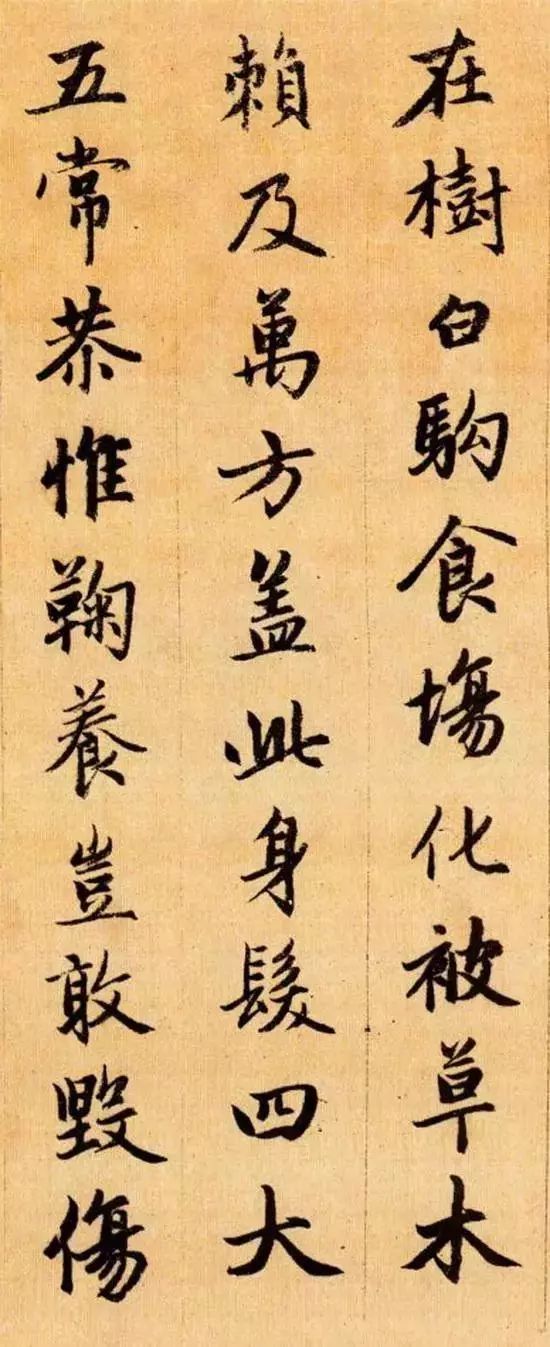 在樹白駒食場化被草木
賴及萬方蓋此身髮四大
五常恭惟鞠養豈敢毀傷